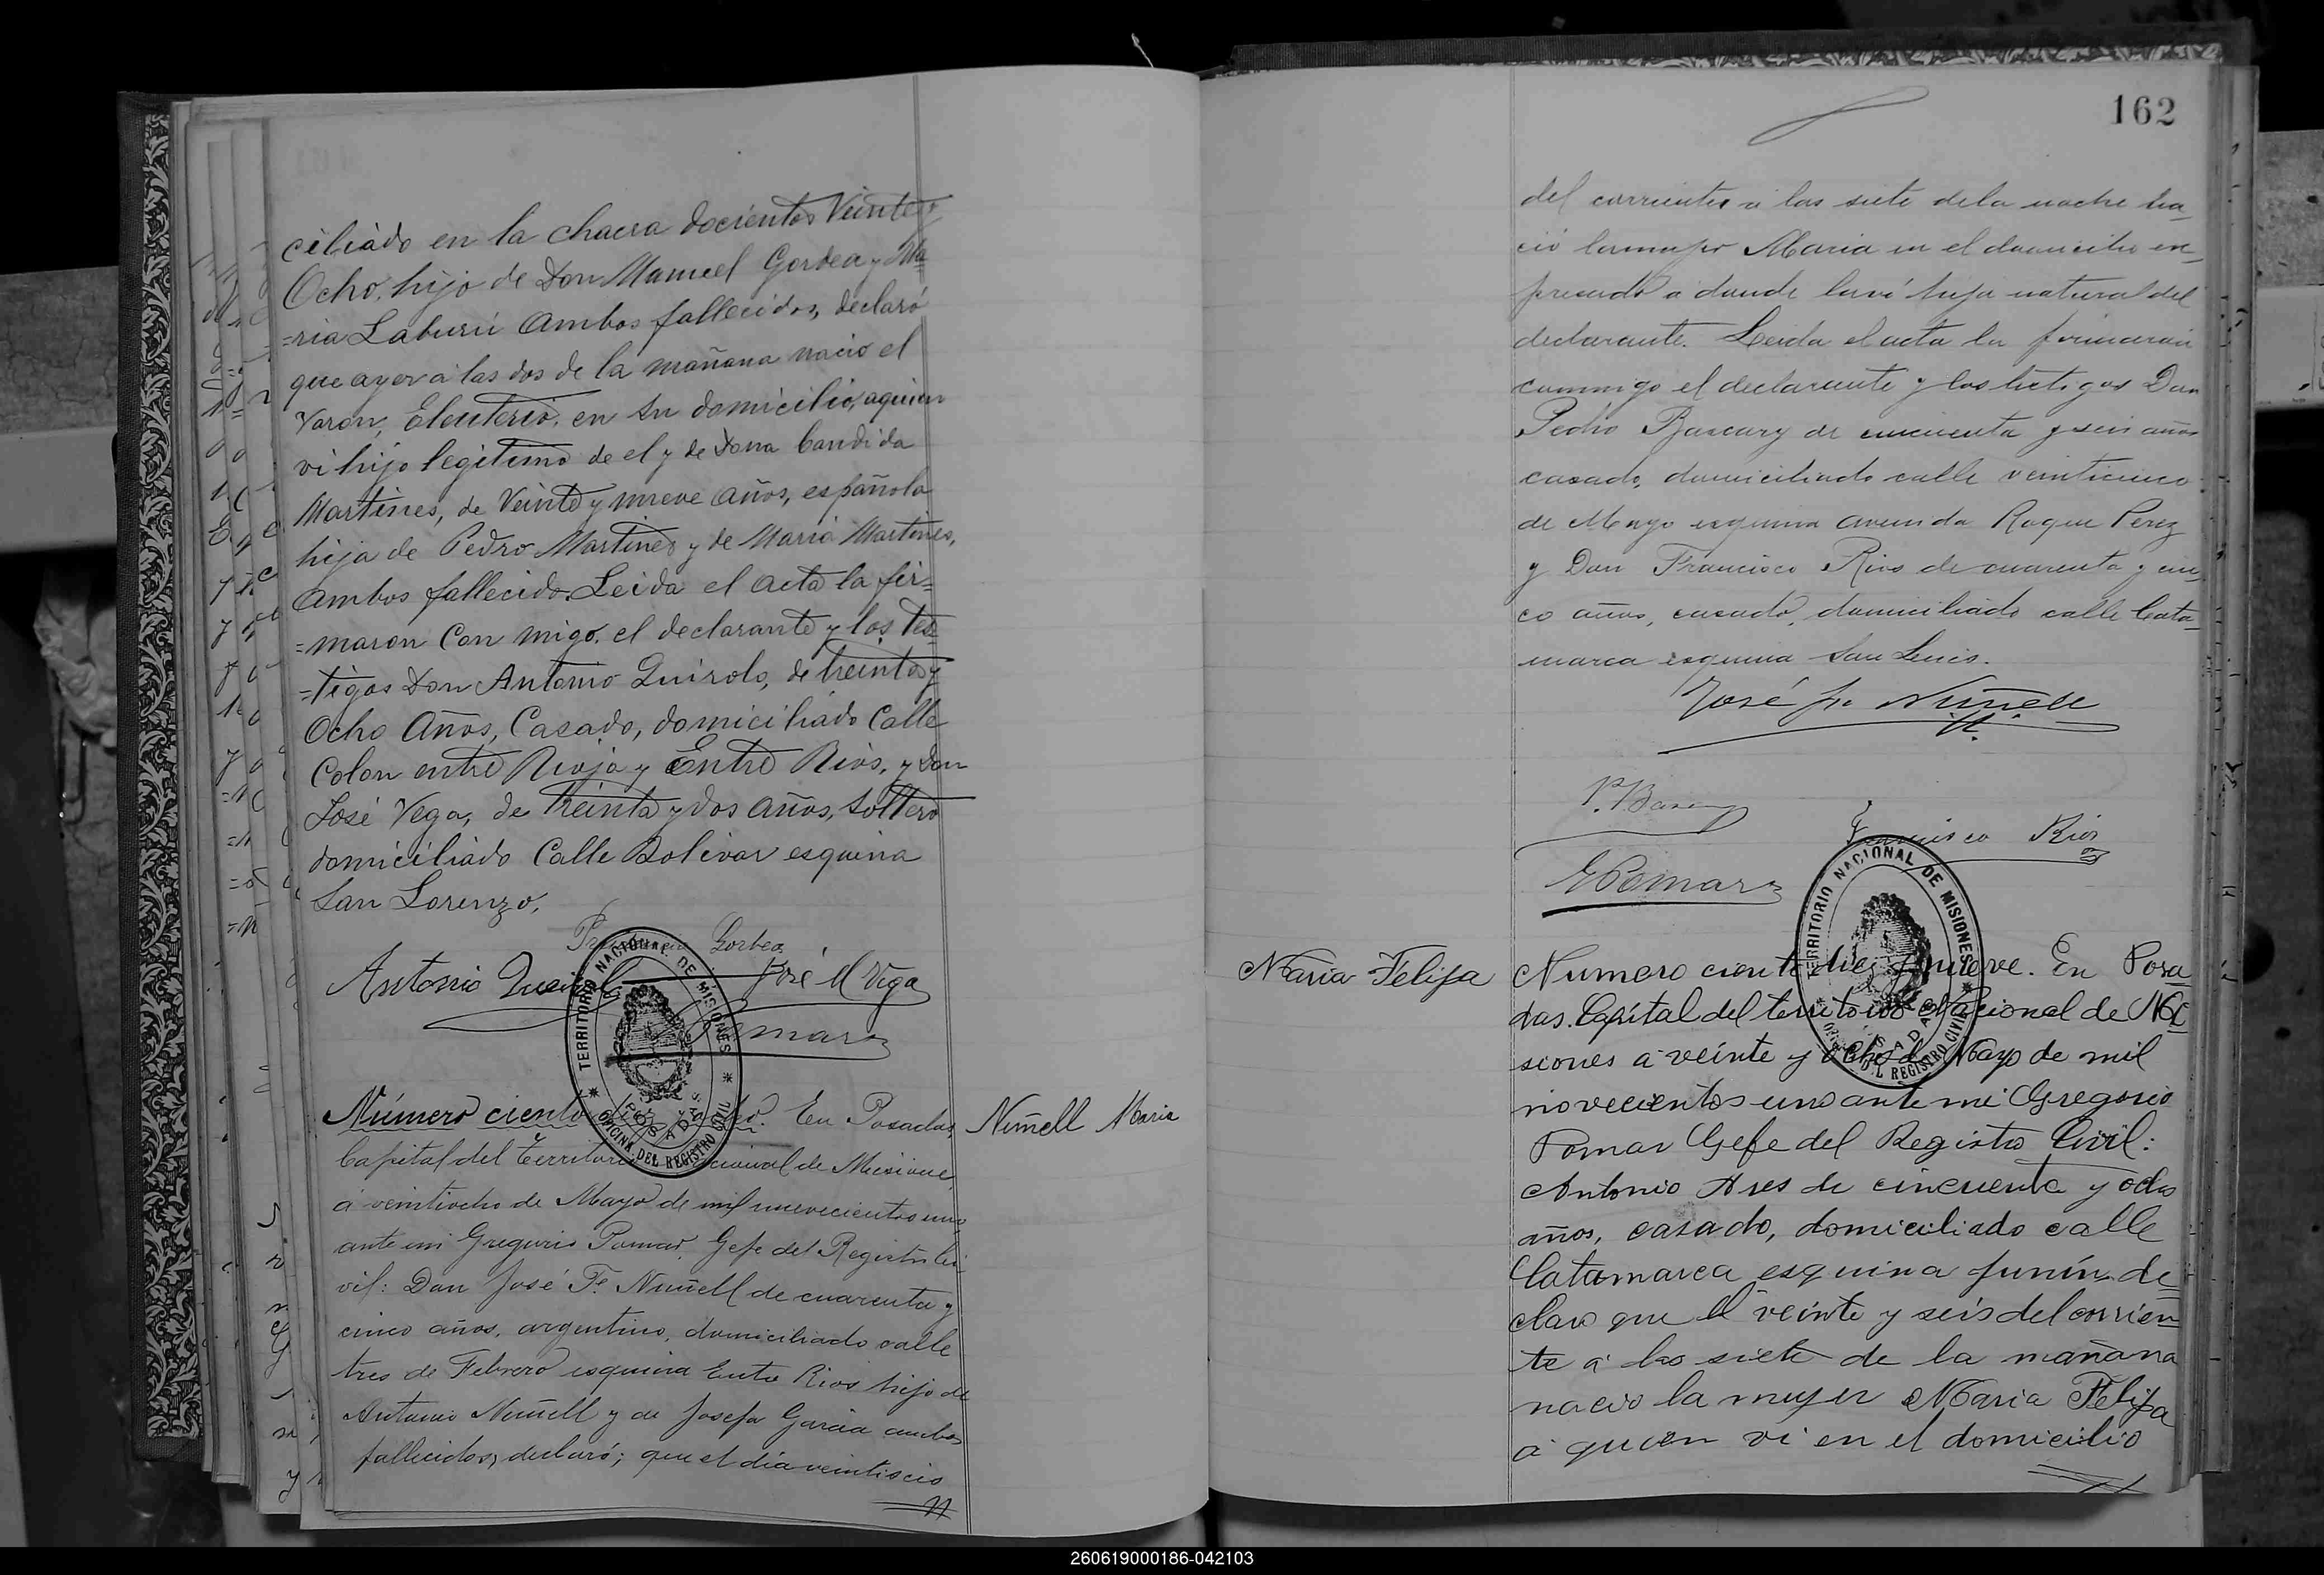 ciliado en la chacra docientos Veinte y
Ocho, hijo de Don Manuel Gorbea y Ma
=ria Laburú Ambos fallecidos, declaró
que ayer a las dos de la mañana nacio el
Varon, Eleuterio, en su domicilio, aquien
vi hijo legitimo de el y de Dona Candida
Martines, de Veinte y nueve años, española
hija de Pedro Martines y de Maria Martines,
Ambos fallecido. Leida el acta la fir=
=maron Con migo, el declarante y los tes=
=tigos Don Antonio Quirolo, de treinta y
Ocho Años, Casado, domiciliado Calle
Colon entre Rioja y Entre Rios, y Don
José Vega, de treinta y dos años, soltero
domiciliado Calle Bolivar esquina
San Lorenzo.
Gorbea
Antonio José M Vega
Pomar
TERRITORIO NACIONAL DE MISIONES
POSADAS
OFICINA DEL REGISTRO CIVIL
Nuñell Maria
Número ciento diez y ocho. En Posadas,
Capital del Territorio Nacional de Misiones
á veintiocho de Mayo de mil nuevecientos uno,
ante mi Gregorio Pomar, Gefe del Registro Ci-
vil: Don José Fº Nuñell de cuarenta y
cinco años, argentino, domiciliado calle
tres de Febrero esquina Entre Rios hijo de
Antonio Nuñell y de Josefa Garcia ambos
fallecidos, declaró; que el dia veintiseis
162
del corriente á las siete dela noche na-
ció lamujer Maria en el domicilio es-
presado a donde la ví hija natural del
declarante. Leida el acta la firmaron
conmigo el declarante y los testigos Don
Pedro Bascary de cincuenta y seis años
casado, domiciliado calle veinticinco
de Mayo esquina avenida Roque Perez
y Don Francisco Rios de cuarenta y cin-
co años, casado, domiciliado calle Cata-
marca esquina San Luis.
José Fo Nuñell
P. Bascary
Francisco Rios
G Pomar
TERRITORIO NACIONAL DE MISIONES
POSADAS
OFICINA DEL REGISTRO CIVIL
Maria Felipa
Numero ciento diez y nueve. En Posa
das. Capital del territorio Nacional de Mi
siones á veinte y ocho de Mayo de mil
novecientos uno ante mi Gregorio
Pomar Gefe del Registro Civil:
Antonio Ares de cincuenta y ocho
años, casado, domiciliado calle
Catamarca esquina Junín de
claro que el veinte y seis del corrien
te á las siete de la mañana
nacio la mujer Maria Felipa
á quien vi en el domicilio
260619000186-042103